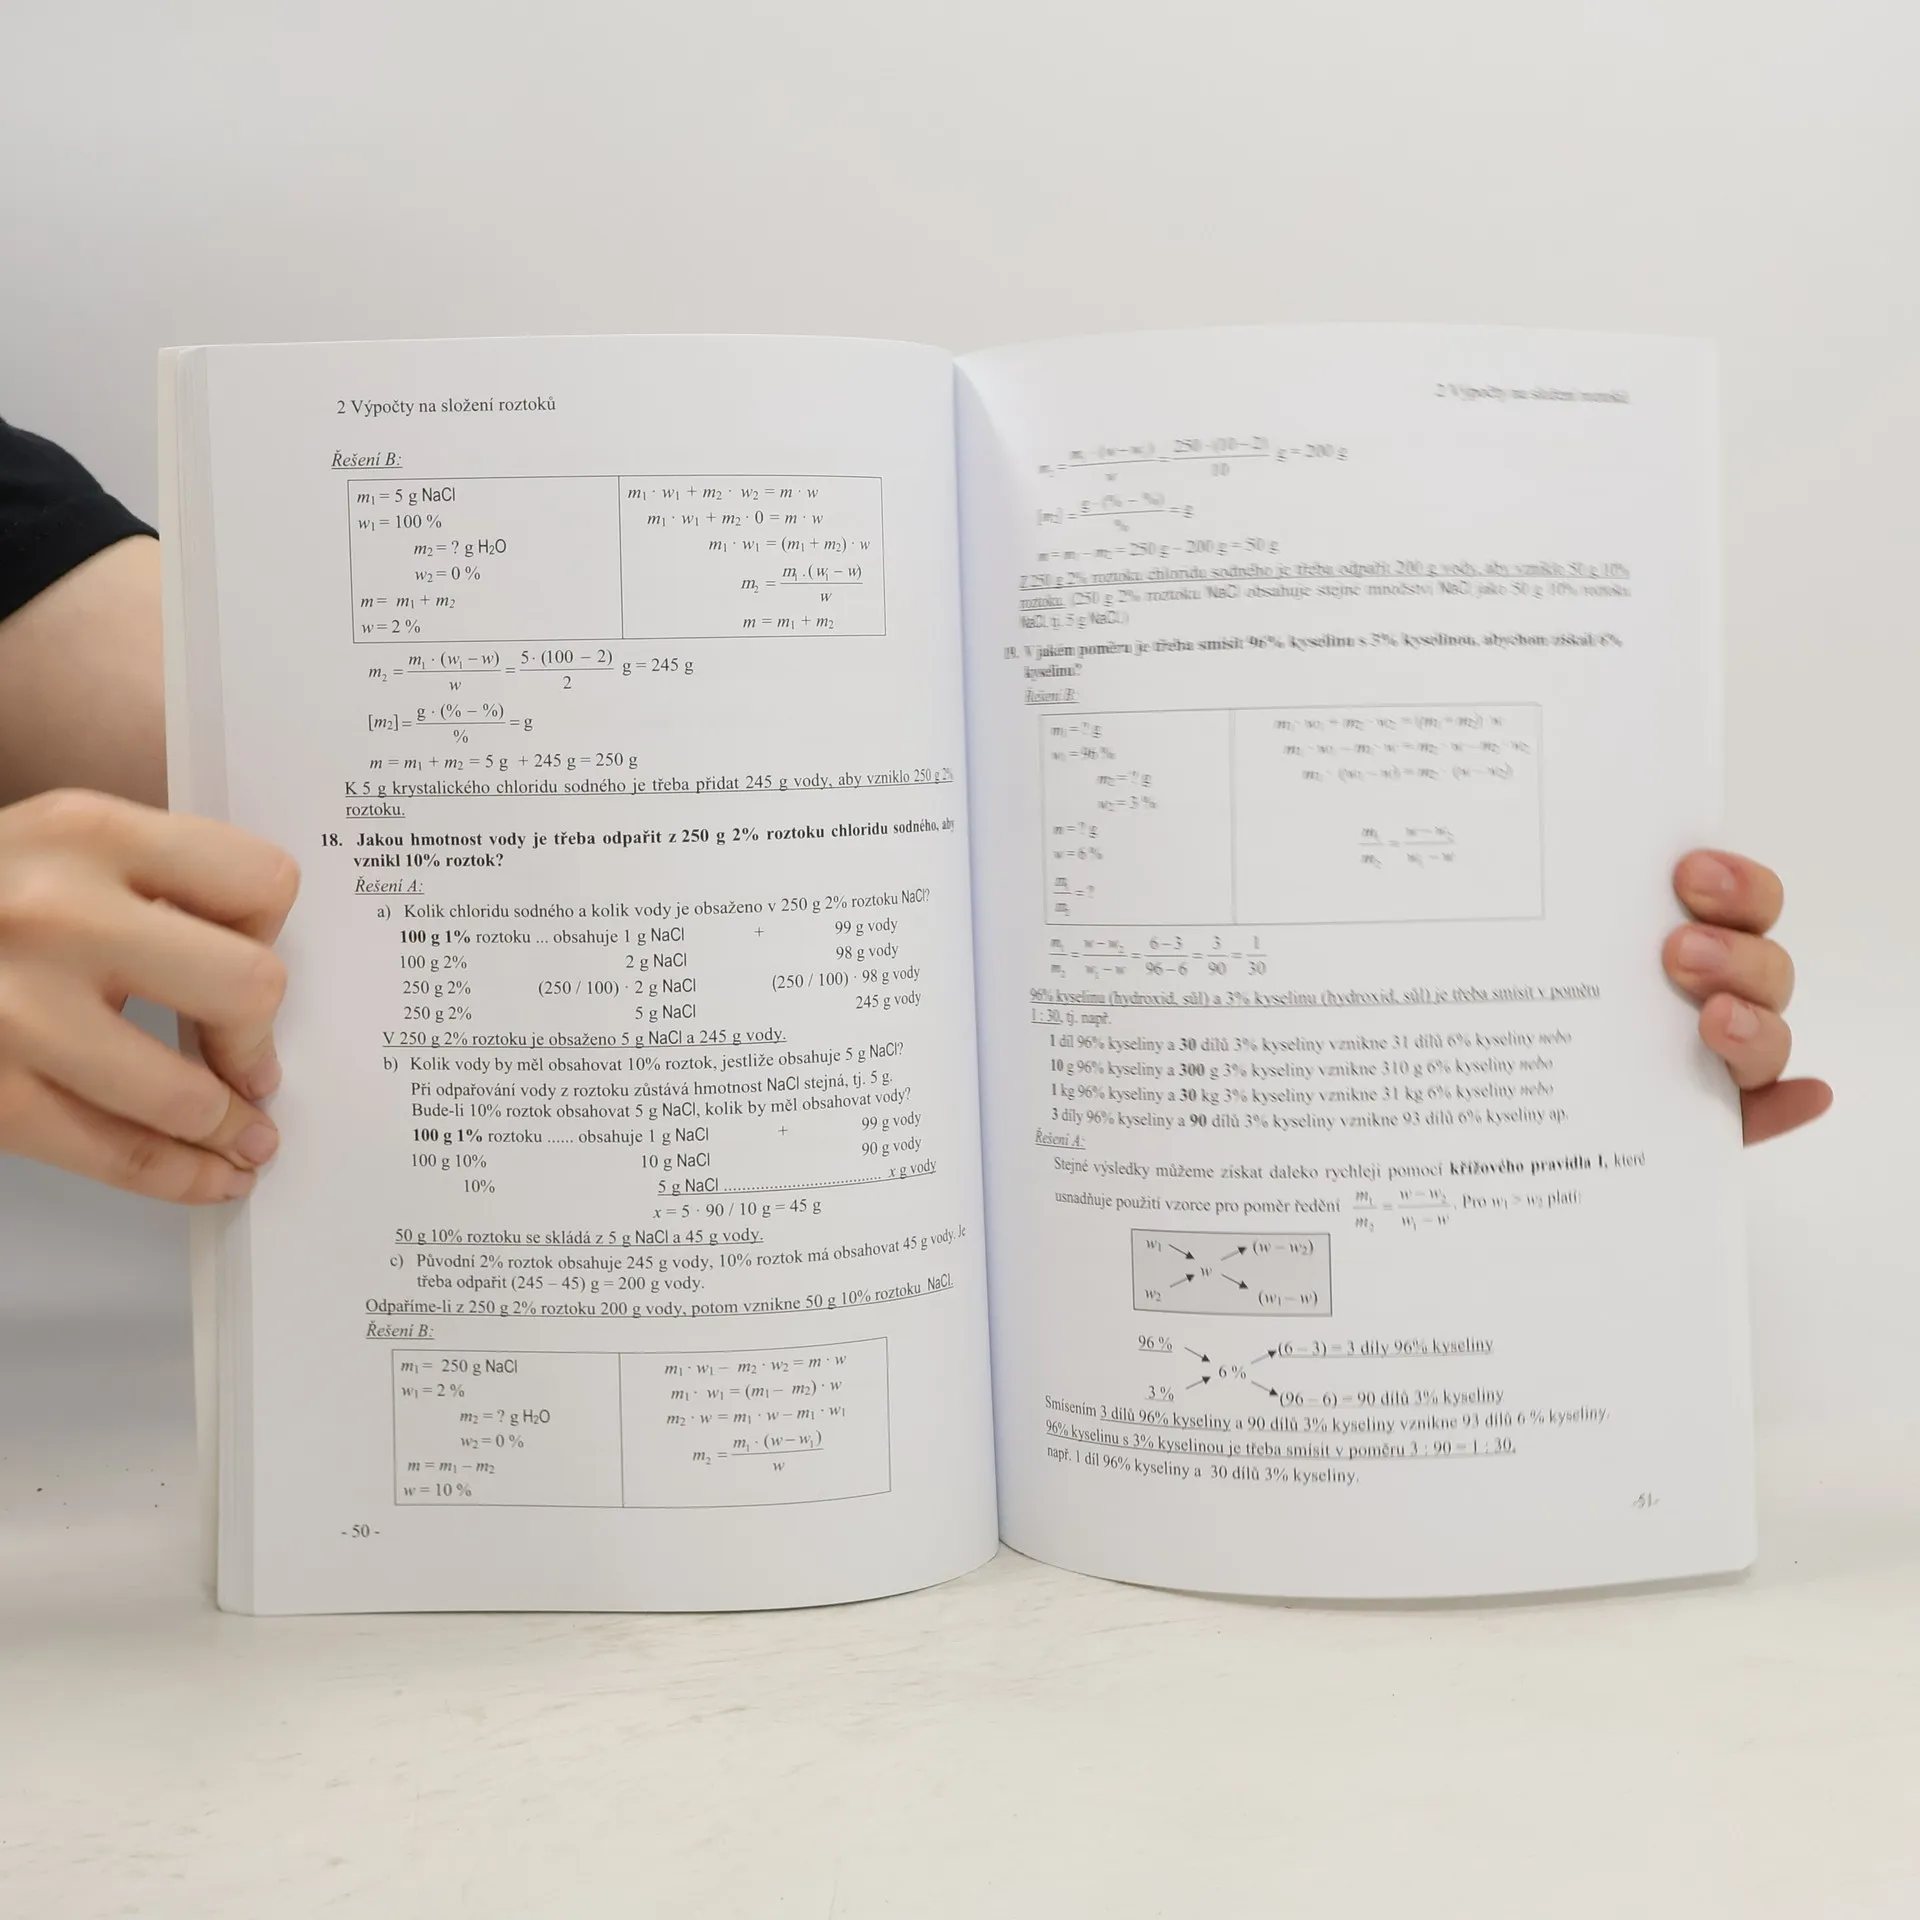 2 Výpočty na složení roztoků
Řešení B:
m₁ = 5 g NaCl
w₁ = 100 %
m₂ = ? g H₂O
w₂ = 0 %
m = m₁ + m₂
w = 2 %
m₁ · w₁ + m₂ · w₂ = m · w
m₁ · w₁ + m₂ · 0 = m · w
m₁ · w₁ = (m₁ + m₂) · w
m₂ = m₁ . (w₁ – w) / w
m = m₁ + m₂
m₂ = m₁ · (w₁ – w) / w = 5 · (100 – 2) / 2 g = 245 g
[m₂] = g · (% – %) / % = g
m = m₁ + m₂ = 5 g + 245 g = 250 g
K 5 g krystalického chloridu sodného je třeba přidat 245 g vody, aby vzniklo 250 g 2%
roztoku.
18. Jakou hmotnost vody je třeba odpařit z 250 g 2% roztoku chloridu sodného, aby
vznikl 10% roztok?
Řešení A:
a) Kolik chloridu sodného a kolik vody je obsaženo v 250 g 2% roztoku NaCl?
100 g 1% roztoku ... obsahuje 1 g NaCl + 99 g vody
100 g 2% 2 g NaCl 98 g vody
250 g 2% (250 / 100) · 2 g NaCl (250 / 100) · 98 g vody
250 g 2% 5 g NaCl 245 g vody
V 250 g 2% roztoku je obsaženo 5 g NaCl a 245 g vody.
b) Kolik vody by měl obsahovat 10% roztok, jestliže obsahuje 5 g NaCl?
Při odpařování vody z roztoku zůstává hmotnost NaCl stejná, tj. 5 g.
Bude-li 10% roztok obsahovat 5 g NaCl, kolik by měl obsahovat vody?
100 g 1% roztoku ...... obsahuje 1 g NaCl + 99 g vody
100 g 10% 10 g NaCl 90 g vody
10% 5 g NaCl ..................................... x g vody
x = 5 · 90 / 10 g = 45 g
50 g 10% roztoku se skládá z 5 g NaCl a 45 g vody.
c) Původní 2% roztok obsahuje 245 g vody, 10% roztok má obsahovat 45 g vody. Je
třeba odpařit (245 – 45) g = 200 g vody.
Odpaříme-li z 250 g 2% roztoku 200 g vody, potom vznikne 50 g 10% roztoku NaCl.
Řešení B:
m₁ = 250 g NaCl
w₁ = 2 %
m₂ = ? g H₂O
w₂ = 0 %
m = m₁ – m₂
w = 10 %
m₁ · w₁ – m₂ · w₂ = m · w
m₁ · w₁ = (m₁ – m₂) · w
m₂ · w = m₁ · w – m₁ · w₁
m₂ = m₁ · (w – w₁) / w
- 50 -
2 Výpočty na složení roztoků
m₂ = m₁ · (w – w₁) / w = 250 · (10 – 2) / 10 g = 200 g
[m₂] = g · (% – %) / % = g
m = m₁ – m₂ = 250 g – 200 g = 50 g
Z 250 g 2% roztoku chloridu sodného je třeba odpařit 200 g vody, aby vzniklo 50 g 10%
roztoku. (250 g 2% roztoku NaCl obsahuje stejné množství NaCl jako 50 g 10% roztoku
NaCl, tj. 5 g NaCl.)
19. V jakém poměru je třeba smísit 96% kyselinu s 3% kyselinou, abychom získali 6%
kyselinu?
Řešení B:
m₁ = ? g
w₁ = 96 %
m₂ = ? g
w₂ = 3 %
m = ? g
w = 6 %
m₁ / m₂ = ?
m₁ · w₁ + m₂ · w₂ = (m₁ + m₂) · w
m₁ · w₁ – m₁ · w = m₂ · w – m₂ · w₂
m₁ · (w₁ – w) = m₂ · (w – w₂)
m₁ / m₂ = w – w₂ / w₁ – w
m₁ / m₂ = w – w₂ / w₁ – w = 6 – 3 / 96 – 6 = 3 / 90 = 1 / 30
96% kyselinu (hydroxid, sůl) a 3% kyselinu (hydroxid, sůl) je třeba smísit v poměru
1 : 30, tj. např.
1 díl 96% kyseliny a 30 dílů 3% kyseliny vznikne 31 dílů 6% kyseliny nebo
10 g 96% kyseliny a 300 g 3% kyseliny vznikne 310 g 6% kyseliny nebo
1 kg 96% kyseliny a 30 kg 3% kyseliny vznikne 31 kg 6% kyseliny nebo
3 díly 96% kyseliny a 90 dílů 3% kyseliny vznikne 93 dílů 6% kyseliny ap.
Řešení A:
Stejné výsledky můžeme získat daleko rychleji pomocí křížového pravidla I, které
usnadňuje použití vzorce pro poměr ředění m₁ / m₂ = w – w₂ / w₁ – w . Pro w₁ > w₂ platí:
w₁ (w – w₂)
w
w₂ (w₁ – w)
96 % (6 – 3) = 3 díly 96% kyseliny
6 %
3 % (96 – 6) = 90 dílů 3% kyseliny
Smísením 3 dílů 96% kyseliny a 90 dílů 3% kyseliny vznikne 93 dílů 6 % kyseliny.
96% kyselinu s 3% kyselinou je třeba smísit v poměru 3 : 90 = 1 : 30,
např. 1 díl 96% kyseliny a 30 dílů 3% kyseliny.
-51-